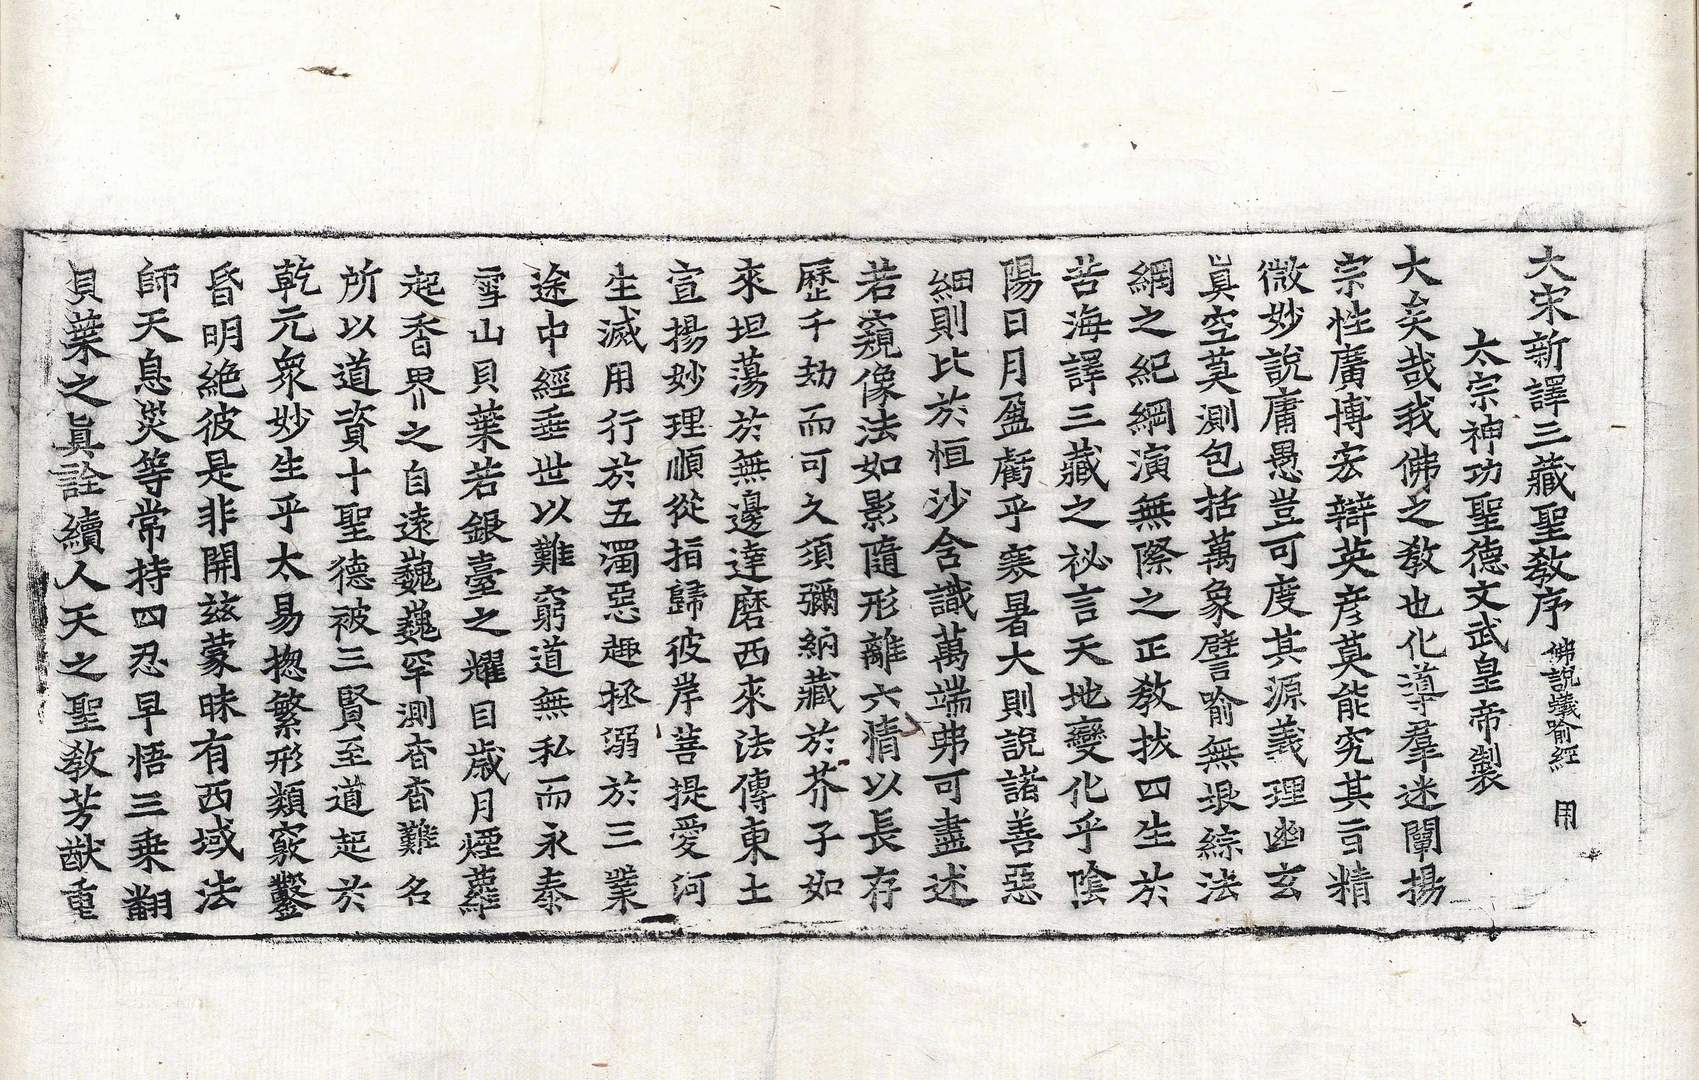 大宋新譯三藏聖教序 佛說蟻喻經 用
太宗神功聖德文武皇帝製
大矣哉我佛之教也化導羣迷闡揚
宗性廣博宏辯英彦莫能究其旨精
微妙說庸愚豈可度其源義理幽玄
真空莫測包括萬象譬喻無垠綜法
網之紀綱演無際之正教拔四生於
苦海譯三藏之祕言天地變化乎陰
陽日月盈虧乎寒暑大則說諸善惡
細則比於恒沙含識萬端弗可盡述
若窺像法如影隨形離六情以長存
歷千劫而可久須彌納藏於芥子如
來坦蕩於無邊達磨西來法傳東土
宣揚妙理順從指歸彼岸菩提愛河
生滅用行於五濁惡趣拯溺於三業
途中經垂世以難窮道無私而永泰
雪山貝葉若銀臺之耀目歲月煙蘿
起香界之自遠巍巍罕測杳杳難名
所以道資十聖德被三賢至道起於
乾元衆妙生乎太易揔繁形類竅鑿
昏明絶彼是非開兹蒙昧有西域法
師天息災等常持四忍早悟三乗翻
貝葉之真詮續人天之聖教芳猷重